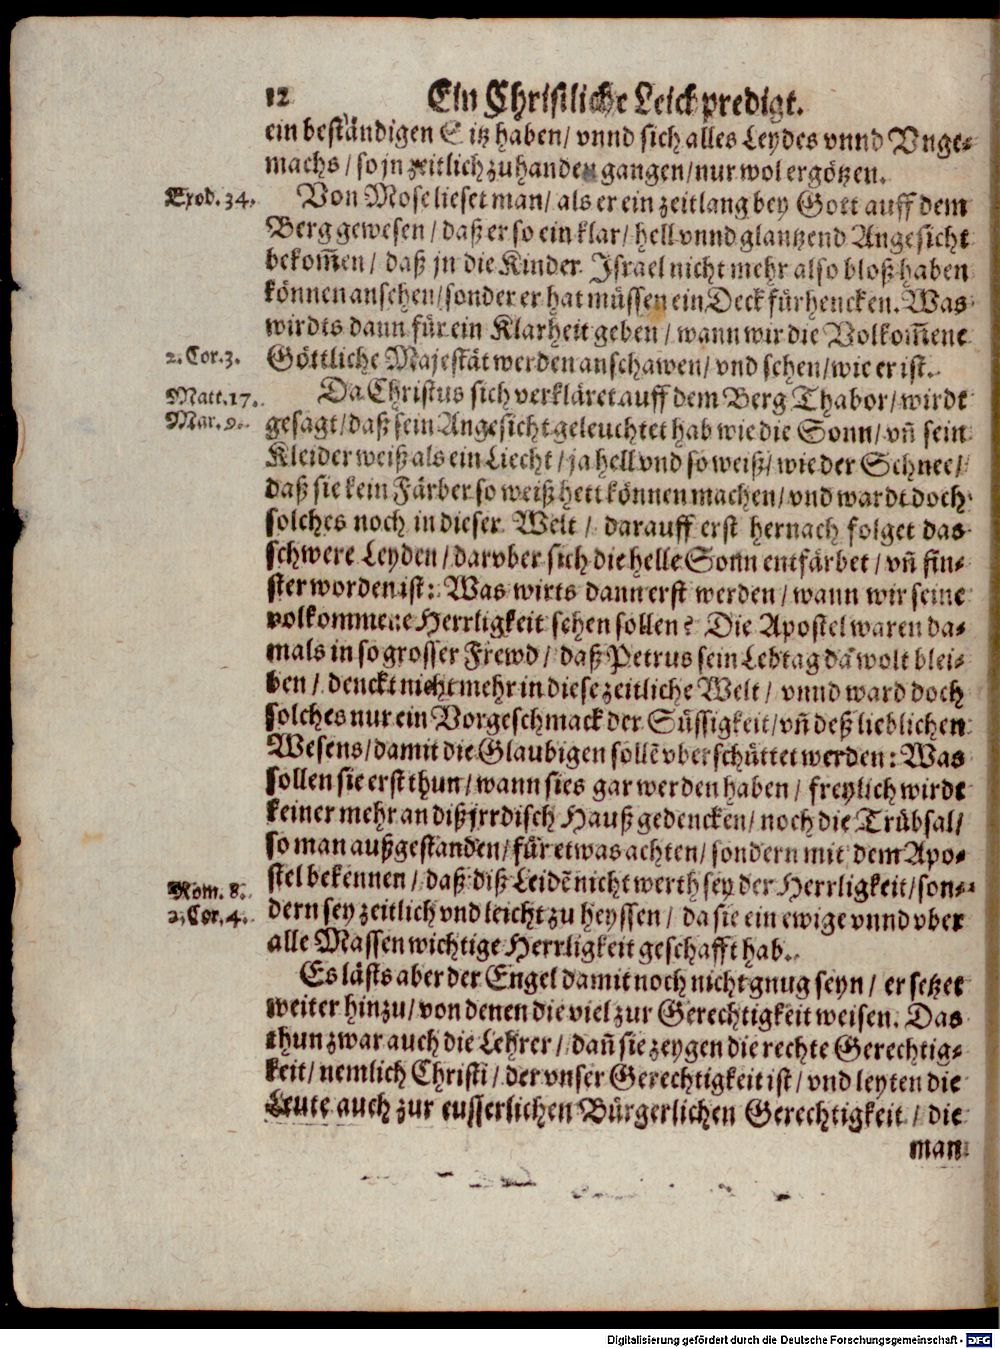 12 Ein Christliche Leickpredigt.
ein beständigen Sitz haben/ vnnd sich alles Leydes vnnd Vnge-
machs/ so jn zeitlich zuhanden gangen/ nur wol ergötzen.
Exod. 34. Von Mose lieset man/ als er ein zeitlang bey Gott auff dem
Berg gewesen/ daß er so ein klar/ hell vnnd glantzend Angesicht
bekom̃en/ daß jn die Kinder Israel nicht mehr also bloß haben
können ansehen/ sonder er hat müssen ein Deck fürhencken. Was
wirdts dann für ein Klarheit geben/ wann wir die Volkom̃ene
2. Cor. 3. Göttliche Majestät werden anschawen/ vnd sehen/ wie er ist.
Matt. 17. Da Christus sich verkläret auff dem Berg Thabor/ wirdt
Mar. 9. gesagt/ daß sein Angesicht geleuchtet hab wie die Sonn/ vñ sein
Kleider weiß als ein Liecht/ ja hell vnd so weiß/ wie der Schnee/
daß sie kein Färber so weiß hett können machen/ vnd wardt doch
solches noch in dieser Welt/ darauff erst hernach folget das
schwere Leyden/ darvber sich die helle Sonn entfärbet/ vñ fin-
ster worden ist: Was wirts dann erst werden/ wann wir seine
volkommene Herrligkeit sehen sollen? Die Apostel waren da-
mals in so grosser Frewd/ daß Petrus sein Lebtag da wolt blei-
ben/ denckt nicht mehr in diese zeitliche Welt/ vnnd ward doch
solches nur ein Vorgeschmack der Süssigkeit/ vñ deß lieblichen
Wesens/ damit die Glaubigen sollẽ vberschüttet werden: Was
sollen sie erst thun/ wann sies gar werden haben/ freylich wirdt
keiner mehr an diß jrrdisch Hauß gedencken/ noch die Trübsal/
so man außgestanden/ für etwas achten/ sondern mit dem Apo-
Rom. 8. stel bekennen/ daß diß Leidẽ nicht werth sey der Herrligkeit/ son-
2. Cor. 4. dern sey zeitlich vnd leicht zu heyssen/ da sie ein ewige vnnd vber
alle Massen wichtige Herrligkeit geschafft hab.
Es lästs aber der Engel damit noch nicht gnug seyn/ er setzet
weiter hinzu/ von denen die viel zur Gerechtigkeit weisen. Das
thun zwar auch die Lehrer/ dañ sie zeygen die rechte Gerechtig-
keit/ nemlich Christi/ der vnser Gerechtigkeit ist/ vnd leyten die
Leute auch zur eusserlichen Bürgerlichen Gerechtigkeit/ die
man
Digitalisierung gefördert durch die Deutsche Forschungsgemeinschaft - DFG